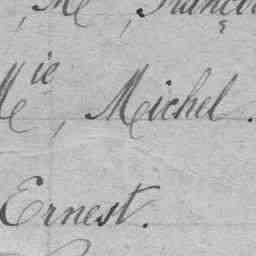 , Me, Franço
Mie, Michel.
Ernest.